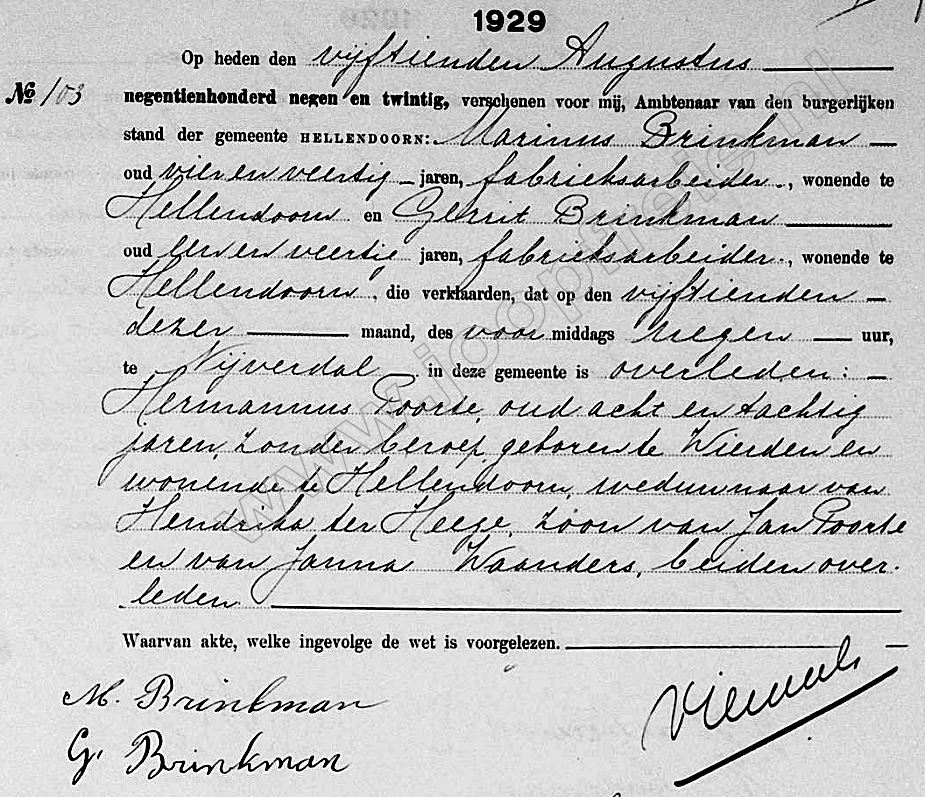 1929
Op heden den vijftienden Augustus
№ 103 negentienhonderd negen en twintig, verschenen voor mij, Ambtenaar van den burgerlijken
stand der gemeente HELLENDOORN: Marinus Brinkman
oud vier en veertig jaren, fabrieksarbeider, wonende te
Hellendoorn en Gerrit Brinkman
oud een en veertig jaren, fabrieksarbeider, wonende te
Hellendoorn, die verklaarden, dat op den vijftienden
dezer maand, des voor middags negen uur,
te Nijverdal in deze gemeente is overleden:
Hermannus Poorte, oud acht en tachtig
jaren, zonder beroep, geboren te Wierden en
wonende te Hellendoorn, weduwnaar van
Hendrika ter Heege, zoon van Jan Poorte
en van Janna Waanders, beiden over-
leden.
Waarvan akte, welke ingevolge de wet is voorgelezen.
M. Brinkman
G. Brinkman